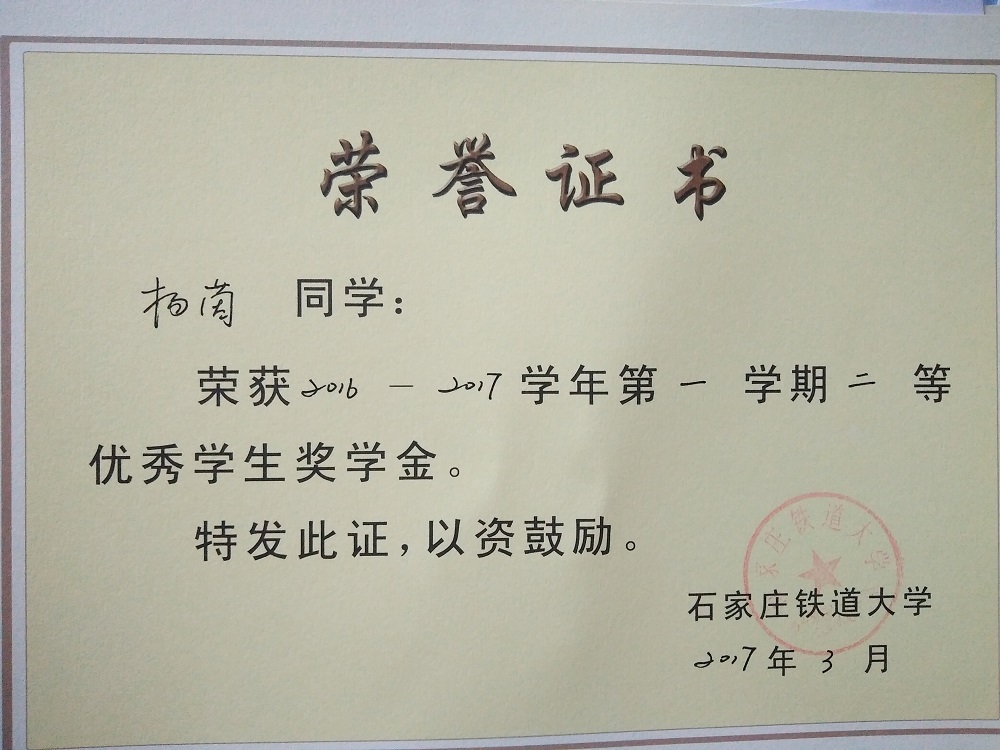 荣誉证书
杨茵 同学：
荣获2016－2017学年第一学期二等
优秀学生奖学金。
特发此证，以资鼓励。
家庄铁道大学
石家庄铁道大学
2017年3月